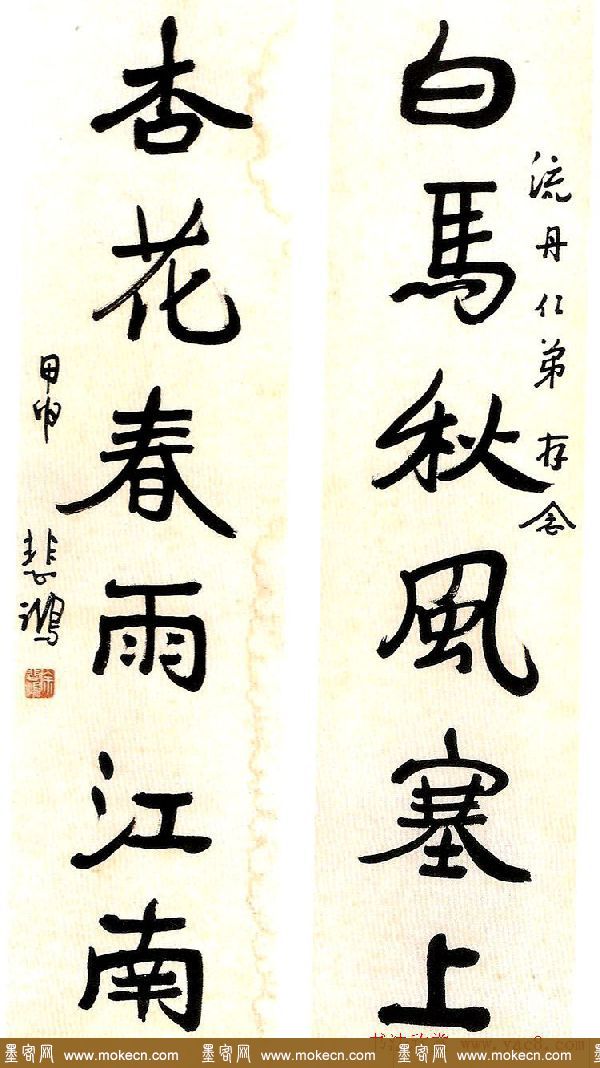 白馬秋風塞上
流丹仁弟存念
杏花春雨江南
甲申
悲鴻
书法欣赏 www.yac8.com
墨客网 www.mokecn.com 墨客网 www.mokecn.com 墨客网 www.mokecn.com